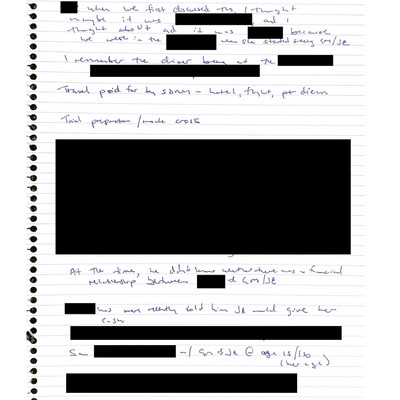 when we first discussed this, I thought
maybe it was and I
thought about and it was because
we were in the when she started seeing GM/JE
I remember the dinner being at the
Travel paid for by SDNY - hotel, flight, per diem
Trial preparation / mock cross
At the time, he didn't know whether there was a financial
relationship between & GM/JE
has more recently told him JE would give her
cash
Saw -/ GM & JE @ age 15/16
(her age)